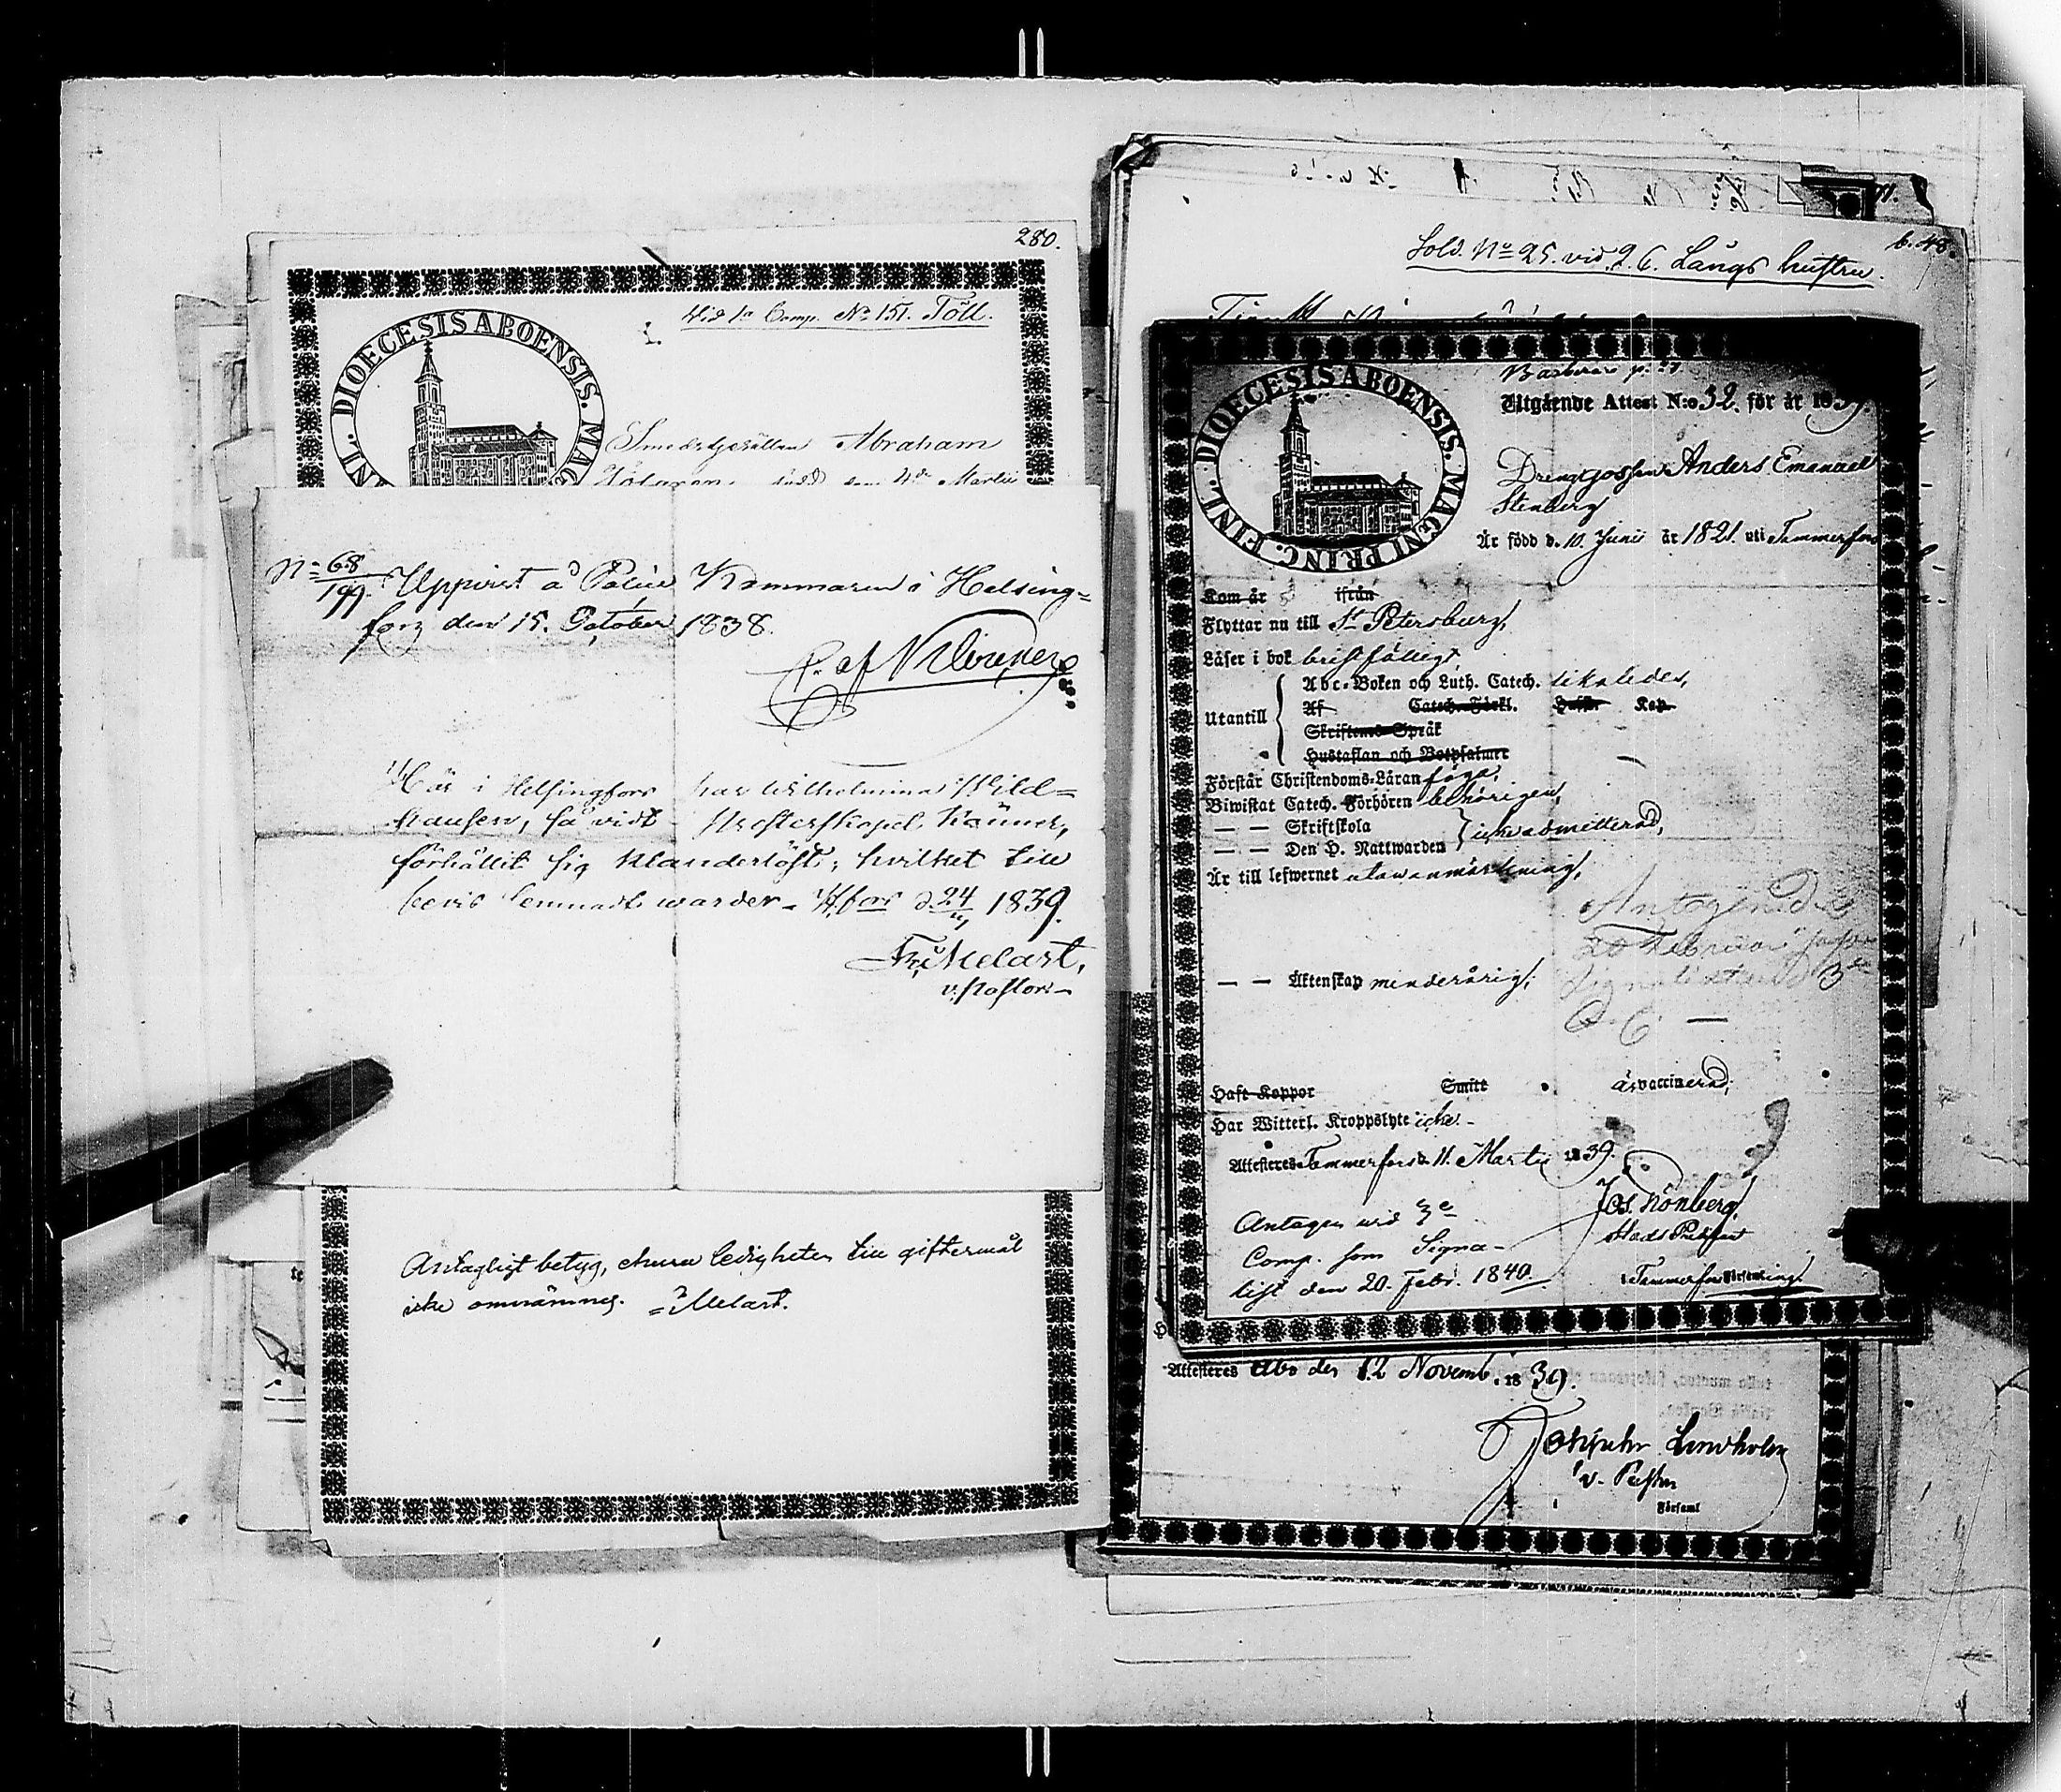 280.
Vid 1a Comp. No 151. Töll.
DIOECESIS ABOENSIS. MAG
INL.
Smedsgesällen Abraham
född den 4de Martii
No 68/199. Uppvist å Police Kammaren i Helsing=
fors den 15. October 1838.
Här i Helsingfors har Wilhelmina Wild=
hausen, så vidt Presterskapet känner,
förhållit sig klanderlöst; hvilket till
bevis lemnadt warder. H:fors d. 24/4 1839.
Melart,
v. Pastor
Antagligt betyg, churu ledigheten till giftermål
icke omnämnes. Melart.
b. 48.
Sold. No 25. vid 2. C. Långs hustru.
DIOECESIS ABOENSIS. MAGNI PRINC. FINL.
Utgående Attest N:o 32. för år 1839.
Drenggossen Anders Emanuel
Stenberg
Är född d. 10 Junii år 1821. uti Tammerfors
Kom år ifrån
Flyttar nu till St Petersburg,
Läser i bok bristfälligt
Abc-Boken och Luth. Catech. likaledes,
Utantill
Af Catech. Förkl. Kap.
Skriftenes Språk
Hustaflan och Botpsalmer
Förstår Christendoms-Läran föga,
Biwistat Catech. Förhören behörigen,
— — Skriftskola
— — Den H. Nattwarden icke admitterad,
Är till lefwernet utan anmärkning,
Antagen d.
20 Februari
Signalist 3
— — Äktenskap minderårig,
Haft Koppor Smitt är vaccinerad;
Har Witterl. Kroppslyte icke.
Attesteres Tammerfors d. 11. Martii 1839.
Antagen vid 3e
Comp. som Signa-
list den 20. Febr. 1840.
Jos. Grönberg,
i Tammerfors Församling.
Attesteres Åbo den 12 Novemb. 1839.
Lindholm
v. Pastor
Församl